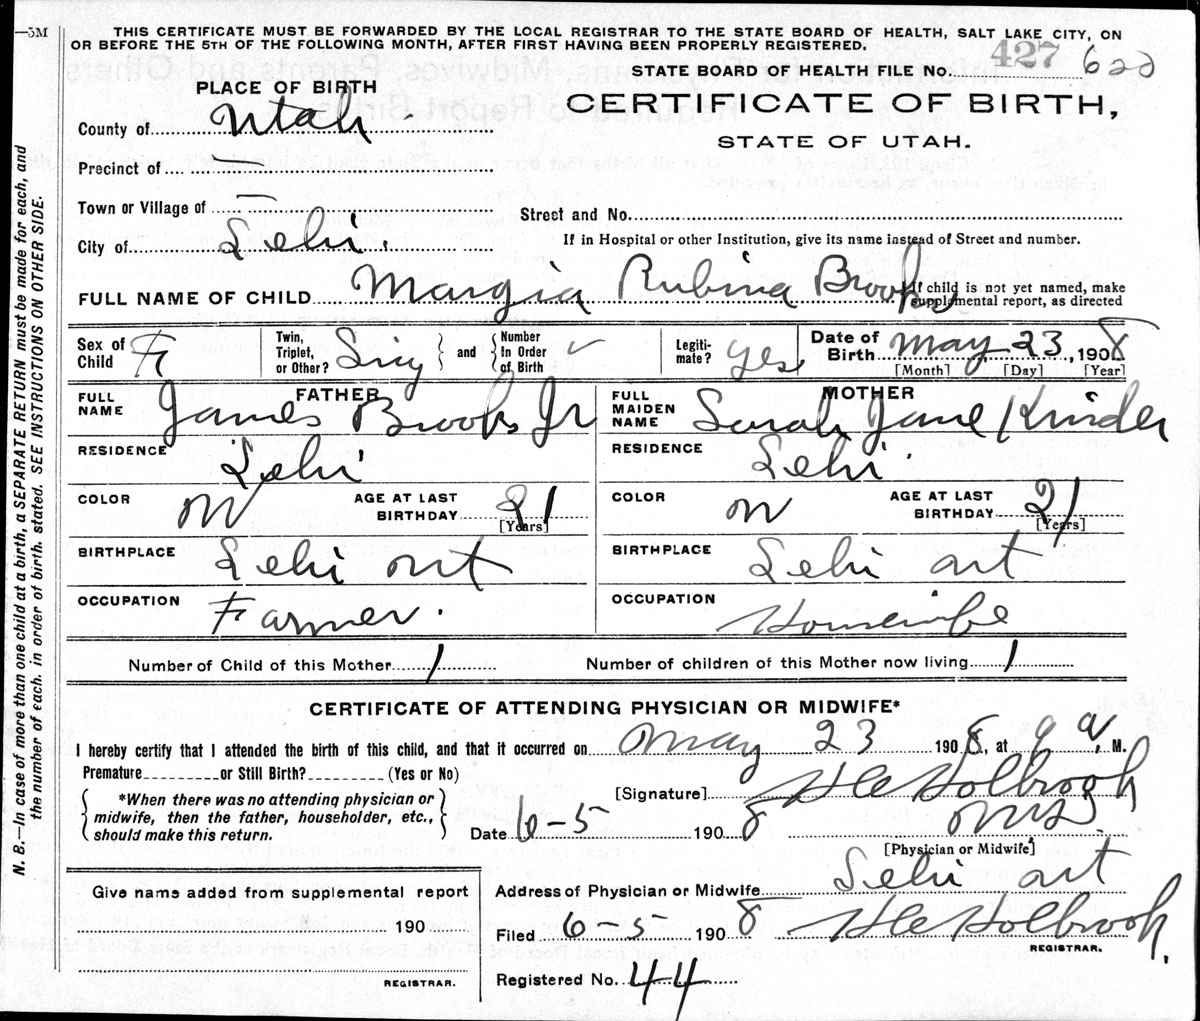 —5M
THIS CERTIFICATE MUST BE FORWARDED BY THE LOCAL REGISTRAR TO THE STATE BOARD OF HEALTH, SALT LAKE CITY, ON
OR BEFORE THE 5TH OF THE FOLLOWING MONTH, AFTER FIRST HAVING BEEN PROPERLY REGISTERED.
STATE BOARD OF HEALTH FILE NO. 427 622
PLACE OF BIRTH
CERTIFICATE OF BIRTH,
STATE OF UTAH.
County of Utah
Precinct of —
Town or Village of —
Street and No.
City of Lehi.
If in Hospital or other Institution, give its name instead of Street and number.
FULL NAME OF CHILD Margia Rubina Brooks
If child is not yet named, make supplemental report, as directed
Sex of Child F
Twin, Triplet, or Other? Sing and Number In Order of Birth ✓
Legitimate? yes
Date of Birth May 23, 1908
[Month] [Day] [Year]
FATHER
FULL NAME James Brooks Jr
RESIDENCE Lehi
COLOR W AGE AT LAST BIRTHDAY 21 [Years]
BIRTHPLACE Lehi Ut
OCCUPATION Farmer.
MOTHER
FULL MAIDEN NAME Sarah Jane Kinder
RESIDENCE Lehi.
COLOR W AGE AT LAST BIRTHDAY 21 [Years]
BIRTHPLACE Lehi Ut
OCCUPATION Housewife
Number of Child of this Mother 1 Number of children of this Mother now living 1
CERTIFICATE OF ATTENDING PHYSICIAN OR MIDWIFE*
I hereby certify that I attended the birth of this child, and that it occurred on May 23 1908, at 9 a, M.
Premature or Still Birth? (Yes or No)
*When there was no attending physician or midwife, then the father, householder, etc., should make this return.
[Signature] Holbrook
Date 6-5 1908 MD
[Physician or Midwife]
Address of Physician or Midwife Lehi Ut
Give name added from supplemental report
190
REGISTRAR.
Filed 6-5 1908 Holbrook,
REGISTRAR.
Registered No. 44
N. B.—In case of more than one child at a birth, a SEPARATE RETURN must be made for each, and
the number of each, in order of birth, stated. SEE INSTRUCTIONS ON OTHER SIDE.